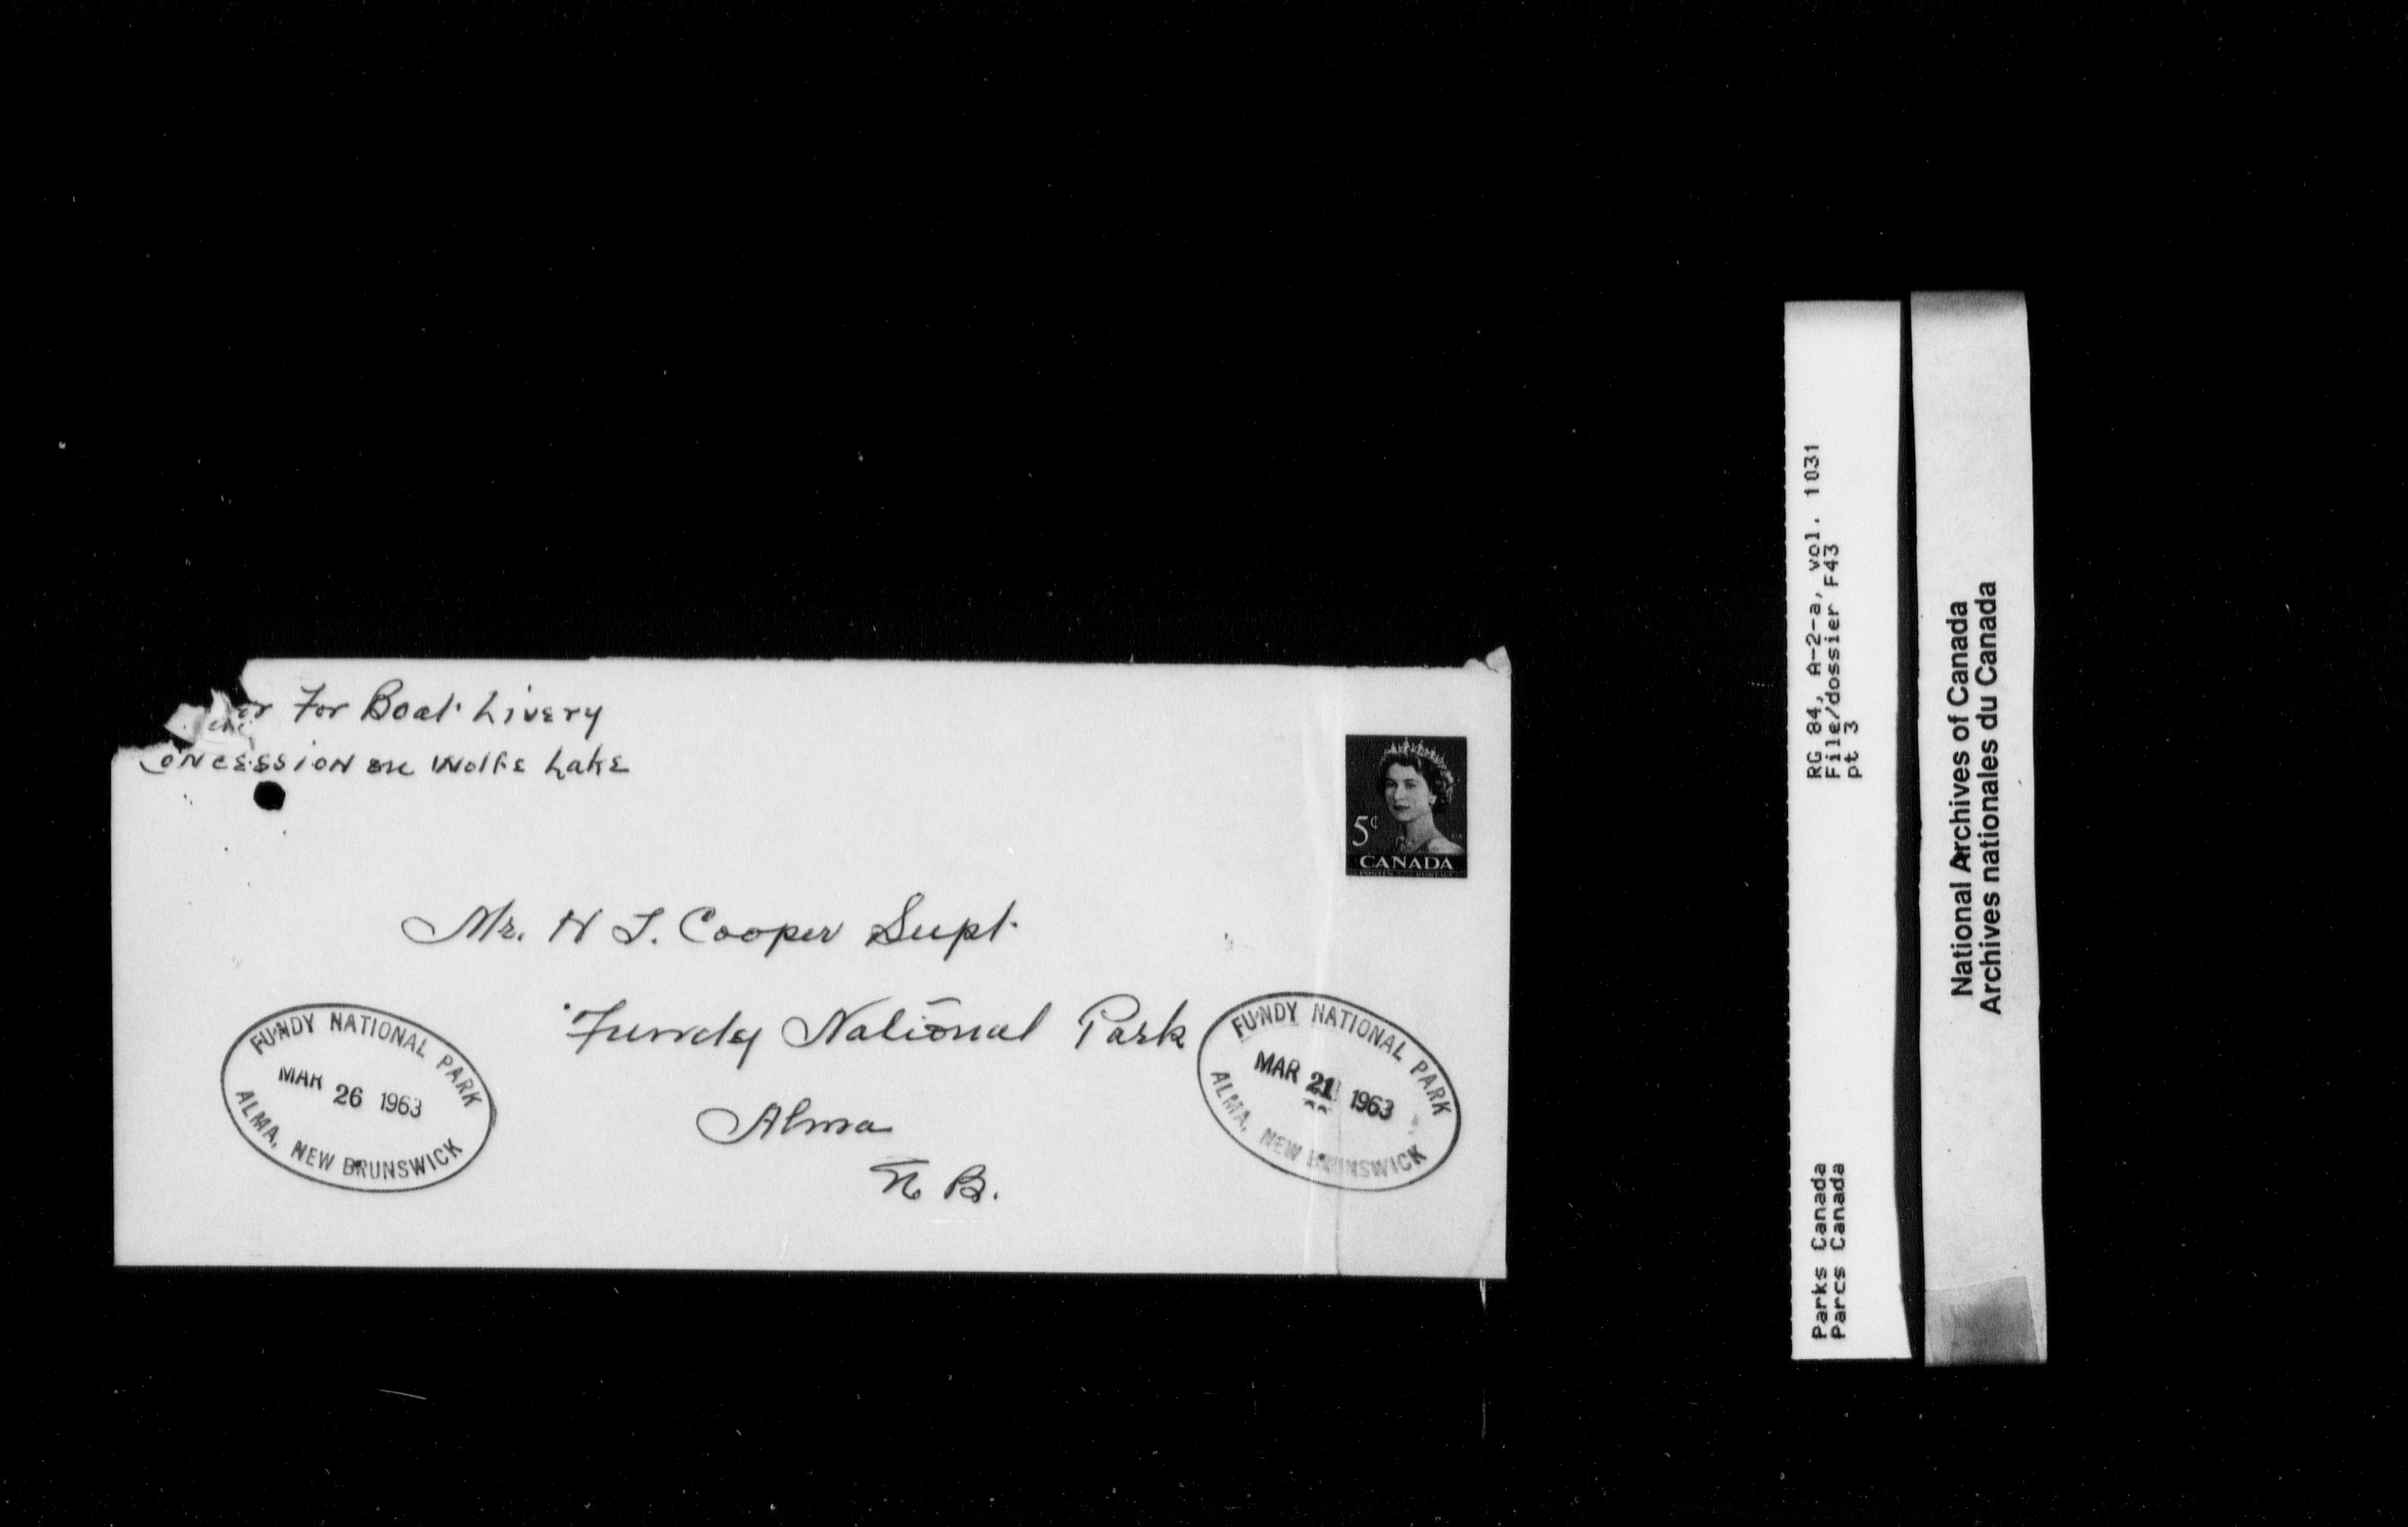 For Boat Livery
Concession on Wolfe Lake
5¢
CANADA
Mr. H J. Cooper Supt.
Fundy National Park
Alma
N B.
FUNDY NATIONAL PARK
MAR 26 1963
ALMA, NEW BRUNSWICK
FUNDY NATIONAL PARK
MAR 21 1963
ALMA, NEW BRUNSWICK
RG 84, A-2-a, vol. 1031
File/dossier F43
pt 3
Parks Canada
Parcs Canada
National Archives of Canada
Archives nationales du Canada